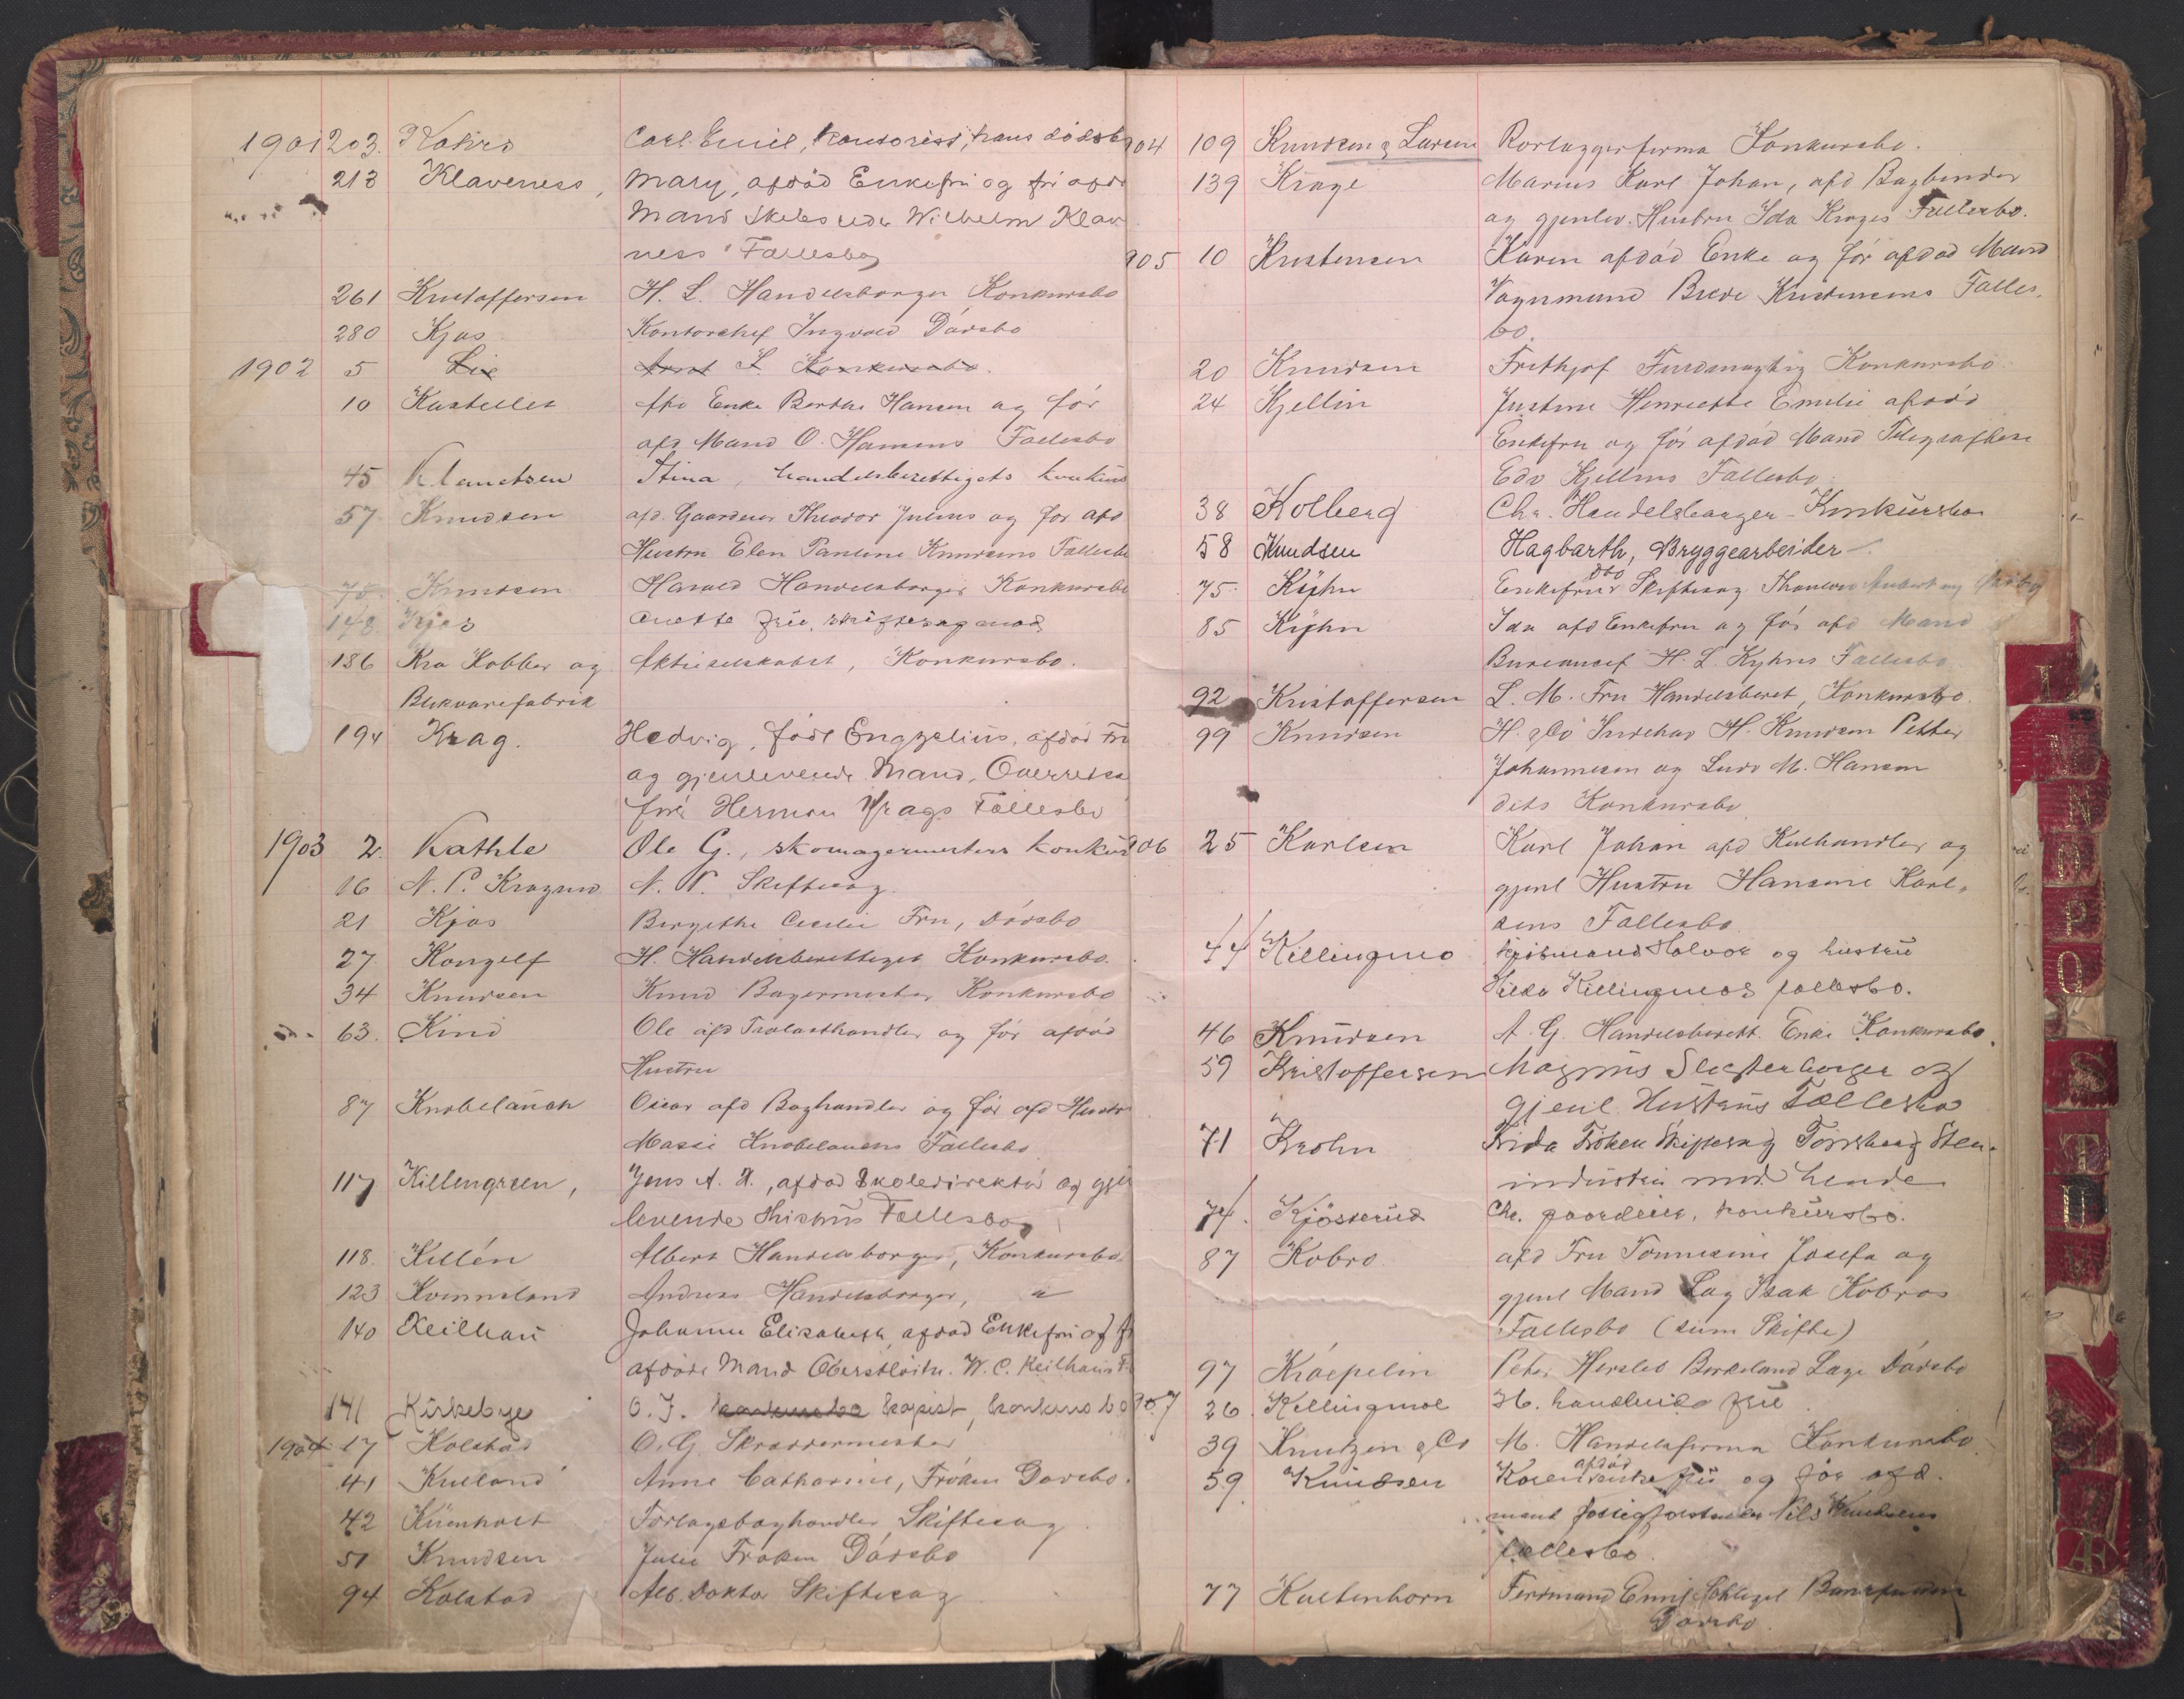 1901 203. Kahrs Carl Emil, Kontorist, hans dødsb
213 Klaveness, Mary, afdød Enkefru og før afd
Mand Skibsreder Wilhelm Klav
ness' Fællesbo
261 Kristoffersen H. L. Handelsborger Konkursbo
280 Kjos Kontorchef Ingvald Dødsbo
1902 5 Lie Arnt L Konkursbo.
10 Kastellet Afd Enke Berthe Hansen og før
afd Mand O. Hansens Fællesbo
45 Klanetsen Stina, handelsberettigets konkurs
57 Knudsen afd. Gaardeier Theodor Julius og før afd
Hustru Elen Pauline Knudsens Fællesbo
75. Knudsen Harald Handelsborger Konkursbo
148 Kjos Anette frue, skiftesag mod
186 Kra Kobber og Aktieselskabet, Konkursbo.
Blikvarefabrik
194 Krag. Hedvig, født Engzelius, afdød Fru
og gjenlevende Mand, Overretssa
fører Herman Krags Fællesbo
1903 2. Kathle Ole G., skomagermesters konkurs
16 N. P. Kragsrud N. N. Skiftesag.
21 Kjos Bergithe Cecilie Fru, Dødsbo
27 Kongelf H. Handelsberettiget Konkursbo.
34 Knudsen Knud Bagermester Konkursbo
63. Kind Ole afd Trælasthandler og før afdød
Hustru
87 Knobelauch Oscar afd Boghandler og før afd Hustr
Massi Knobelauchs Fællesbo
117 Killengreen, Jens A. H., afdød Skoledirektør og gjen
levende Hustrus Fællesbo
118. Killén Albert Handelsborger, Konkursbo.
123 Kvinnesland Andreas Handelsborger, "
140 Keilhau Johanne Elisabeth, afdød Enkefru og f
afdøde Mand Oberstløitn. W. C. Keilhaus F
141 Kirkebye O. J. konkursbo kopist, konkursbo
1904 17 Kolstad O. G. Skræddermester
41 Kulland Anne Catharine, Frøken Dødsbo.
42 Küenholt Forlagsboghandler Skiftesag
51 Knudsen Julie Frøken Dødsbo
94 Kolstad Alb. Doktor Skiftesag
904 109 Knudsen & Larsen Rørlæggerfirma Konkursbo.
139 Krage Marius Karl Johan, afd Bogbinder
og gjenlev. Hustru Ida Krages Fællesbo.
905 10 Kristensen Karen afdød Enke og før afdød Mand
Vognmand Brede Kristensens Fælles
bo.
20 Knudsen Frithjof Konkursbo
24 Kjellin Justine Henriette Emilie afdød
Enkefru og før afdød Mand Telegrafbest
Edv Kjellins Fællesbo
38 Kolberg Chr. Handelsborger - Konkursbo
58 Knudsen Hagbarth, Bryggearbeider
Dbo
75. Kyhn Enkefrue Skiftesag
85 Kyhn Ida afd Enkefru og før afd Mand
Bureauchef H. L. Kyhns Fællesbo
92 Kristoffersen L. M. Fru Handelsberet, Konkursbo.
99 Knudsen H. & Co Indehav H. Knudsen Petter
Johannesen og Ludv M. Hansen
dets Konkursbo
906 25 Karlsen Karl Johan afd Kulhandler og
gjenl Hustru Hansine Karl-
sens Fællesbo.
44 Killingmo Halvor og hustru
Hilda Killingmos fællesbo.
46 Knudsen A. G. Handelsberett. Enke Konkursbo.
59 Kristoffersen Magnus Slagterborger og
gjenl. Hustrus Fællesbo
71 Krohn Frida Frøken Skiftesag Tønsberg Sten-
industri mod hende
74. Kjøsterud Chr. gaardeier, konkursbo.
87 Kobro afd Fru Tonnesine Josefa og
gjenl Mand Læg Isak Kobros
Fællesbo (sum Skifte)
97 Kraepelin Peter Hersleb Birkeland Læge Dødsbo
907 26. Killingmoe H. handlende frue.
39 Knutzen & Co M. Handelsfirma Konkursbo.
59. Knudsen Karen afdød enkefru og før afd.
mand fattigforstander Nils Knudsens
fællesbo.
77 Kaltenborn Ferdinand Emil Schlegel
Dødsbo.
L M N O P Q S T U Æ